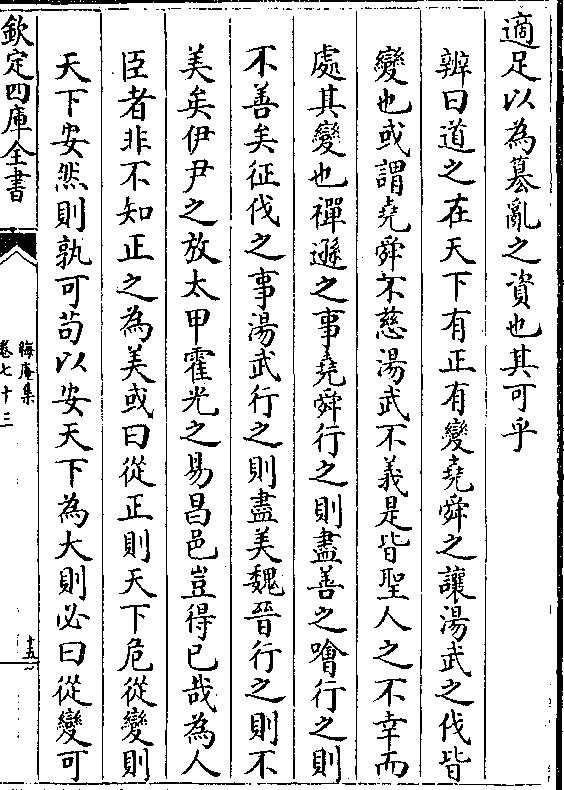 適足以為簒亂之資也其可乎
辨曰道之在天下有正有變堯舜之讓湯武之伐皆
變也或謂堯舜不慈湯武不義是皆聖人之不幸而
處其變也禪遜之事堯舜行之則盡善之噲行之則
不善矣征伐之事湯武行之則盡美魏晉行之則不
美矣伊尹之放太甲霍光之易昌邑豈得已哉為人
臣者非不知正之為美或曰從正則天下危從變則
天下安然則孰可茍以安天下為大則必曰從變可
欽定四庫全書
晦庵集
卷七十三
十五